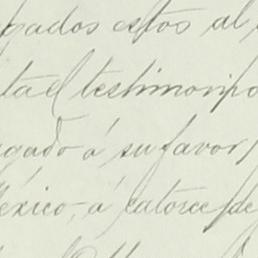 gados estos al
ta el testimonio
gado á su favor
éxico, á catorce de